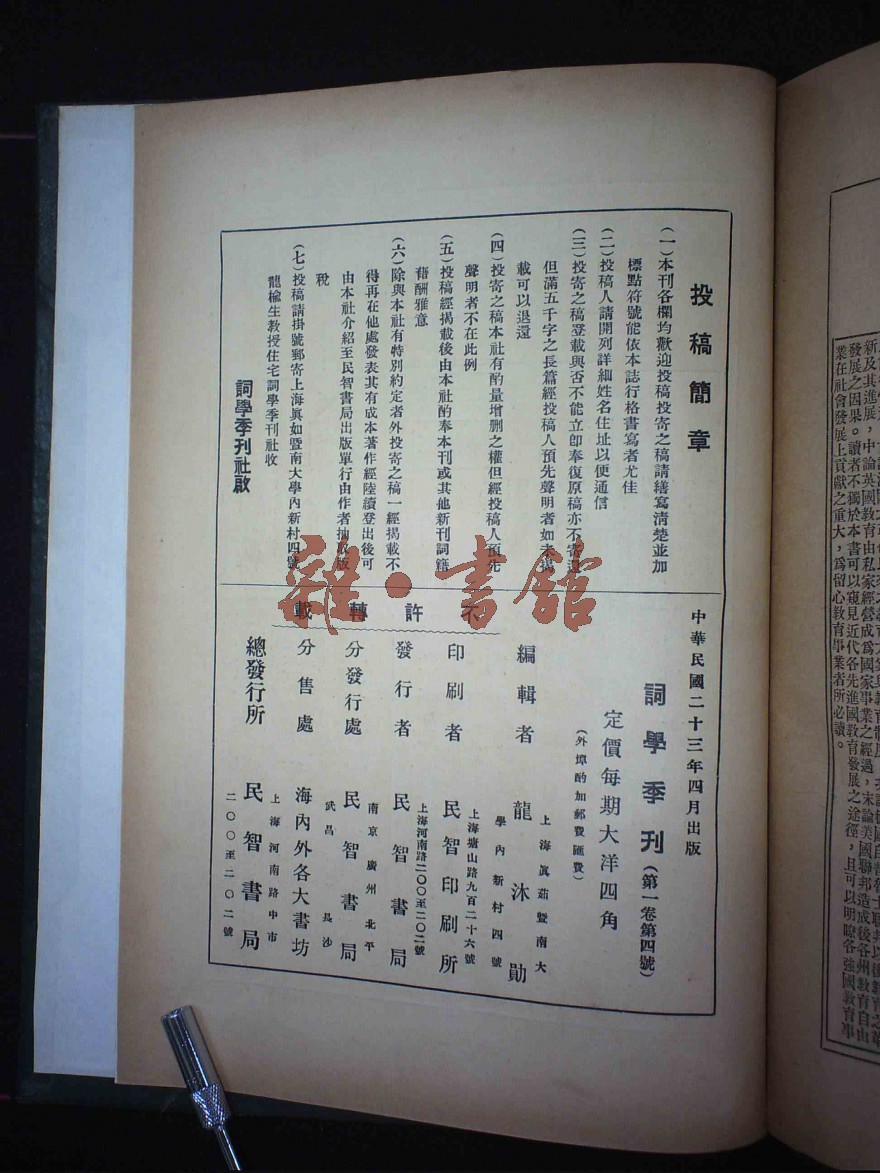 投稿簡章
(一)本刊各欄均歡迎投稿投寄之稿請繕寫清楚並加
標點符號能依本誌行格書寫者尤佳
(二)投稿人請開列詳細姓名住址以便通信
(三)投寄之稿登載與否不能立卽奉復原稿亦不寄還
但滿五千字之長篇經投稿人預先聲明者如未揭
載可以退還
(四)投寄之稿本社有酌量增删之權但經投稿人預先
聲明者不在此例
(五)投稿經揭載後由本社酌奉本刊或其他新刊詞籍
藉酬雅意
(六)除與本社有特別約定者外投寄之稿一經揭載不
得再在他處發表其有成本著作經陸續登出後可
由本社介紹至民智書局出版單行由作者抽取版
稅
(七)投稿請掛號郵寄上海眞如暨南大學內新村四號
龍榆生教授住宅詞學季刊社收
詞學季刊社啟
中華民國二十三年四月出版
詞學季刊(第一卷第四號)
定價每期大洋四角
(外埠酌加郵費匯費)
不許轉載
編輯者 龍沐勛
上海眞茹暨南大
學內新村四號
印刷者 民智印刷所
上海塘山路九百二十六號
發行者 民智書局
上海河南路二〇〇至二〇二號
分發行處 民智書局
南京 廣州 北平
武昌 長沙
分售處 海內外各大書坊
總發行所 民智書局
上海河南路中市
二〇〇至二〇二號
雜·書館
新及其進展,中論英國教育由私家經營成為國家事業之經過,末論美國聯邦造成後各州教育自由
發展之因果。讀者不獨於本書可以窺見近代各先進國教育發展之途徑,且可以明瞭各強國教育事
業在社會發展上貢獻之重大,為留心教育事業者所必讀。